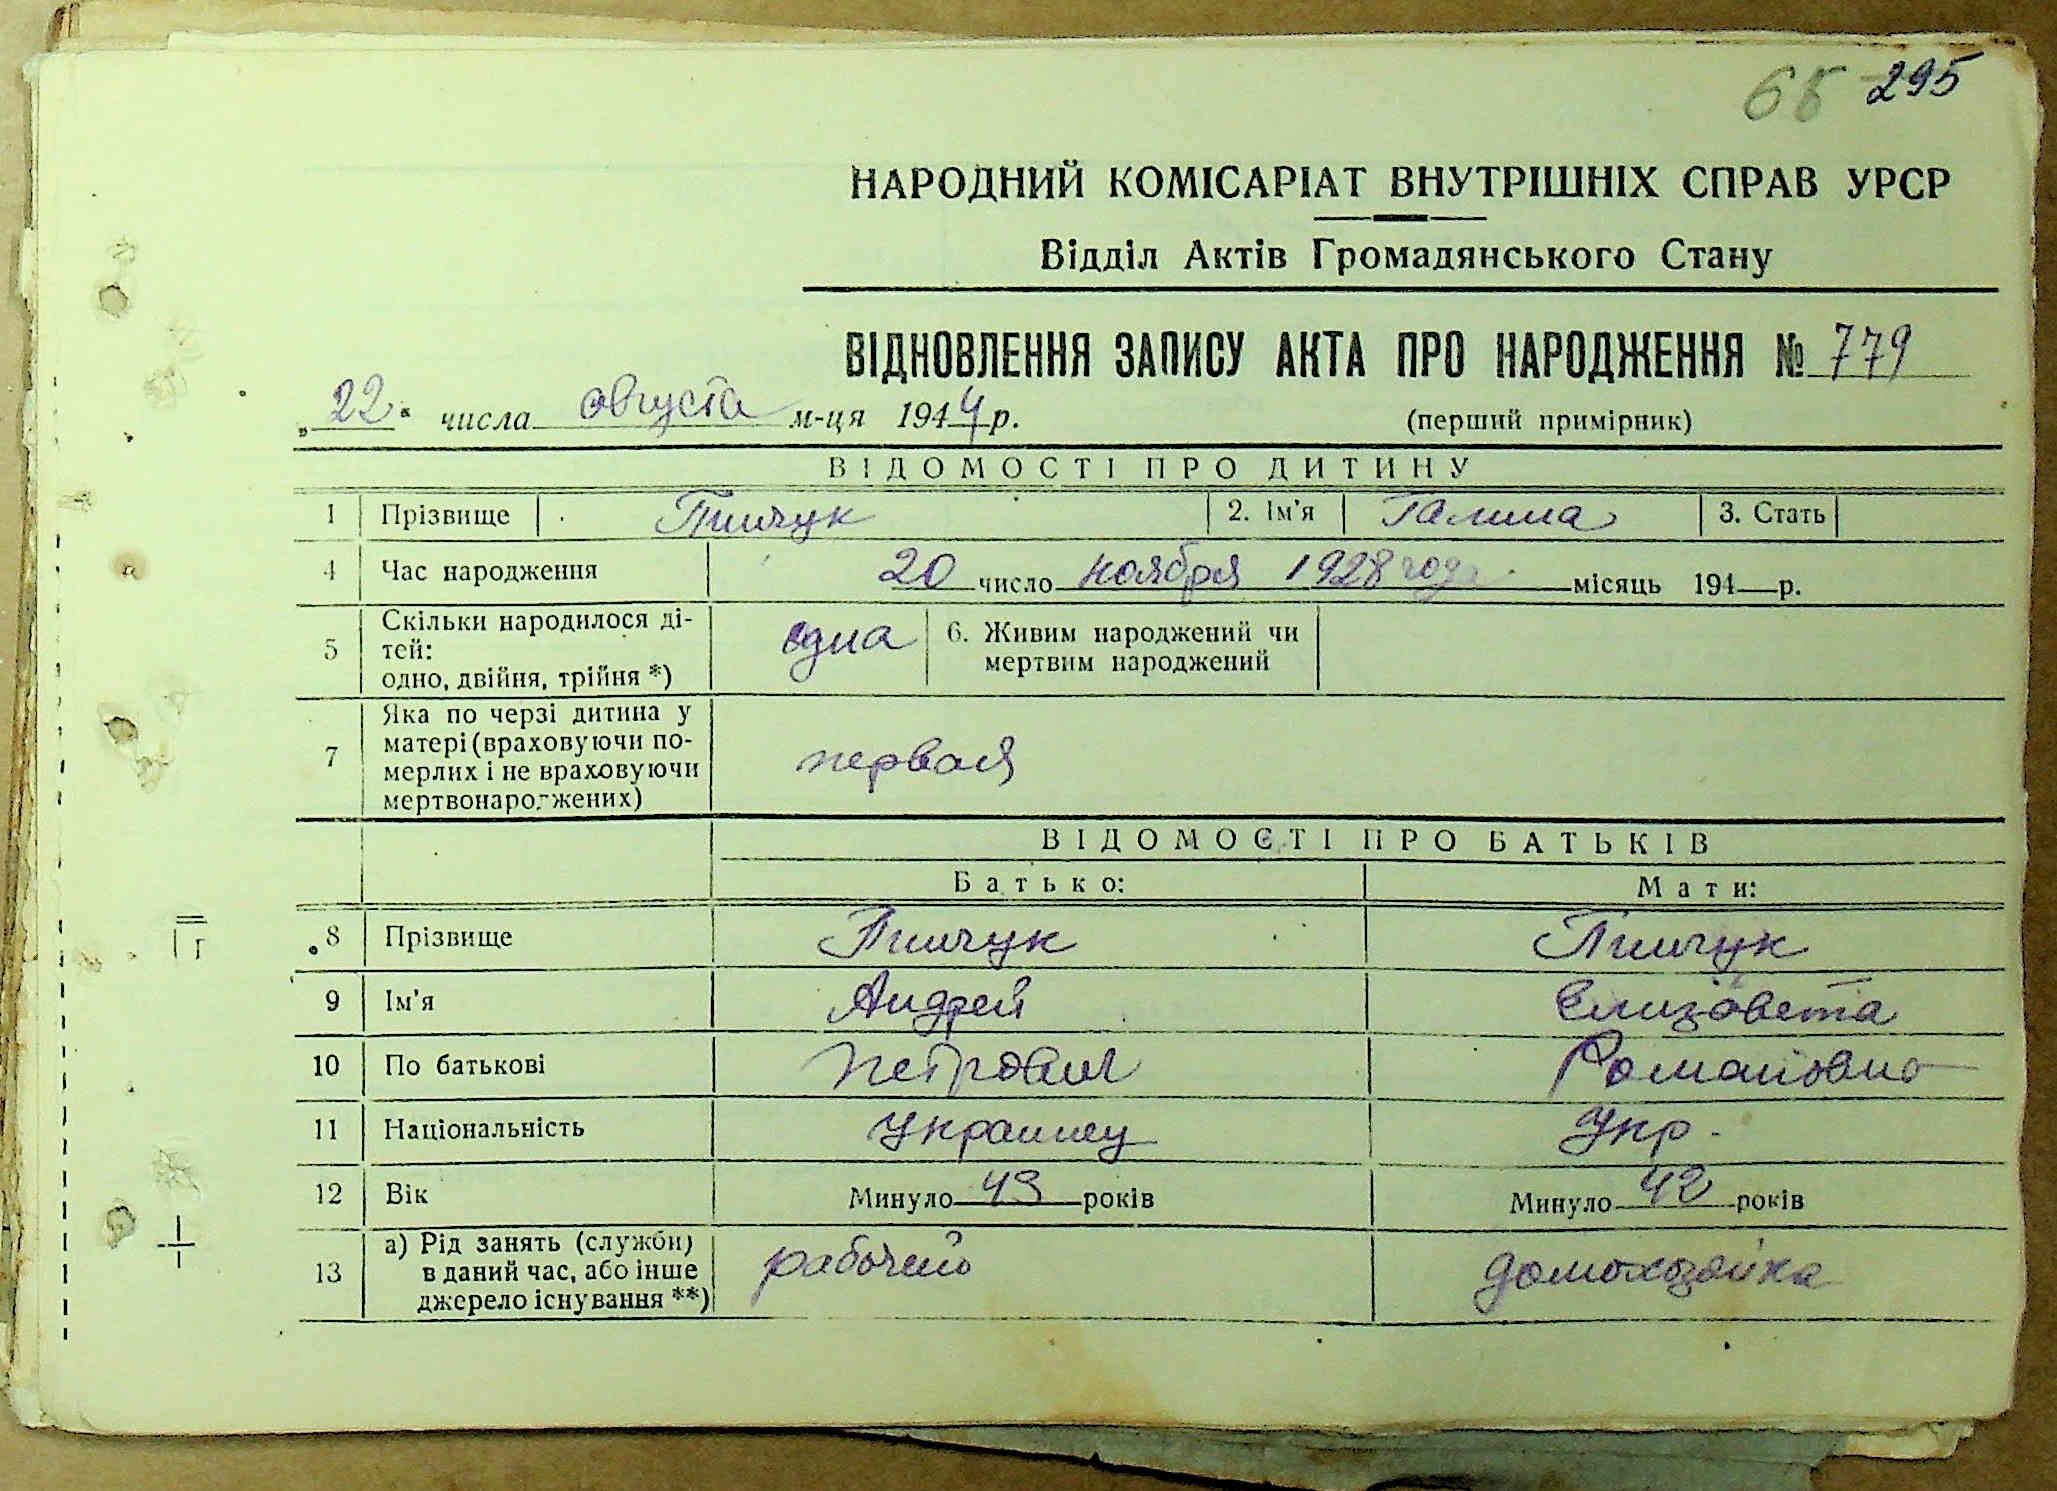 68 295
НАРОДНИЙ КОМІСАРІАТ ВНУТРІШНІХ СПРАВ УРСР
Відділ Актів Громадянського Стану
ВІДНОВЛЕННЯ ЗАПИСУ АКТА ПРО НАРОДЖЕННЯ № 779
„22“ числа августа м-ця 1944 р. (перший примірник)
ВІДОМОСТІ ПРО ДИТИНУ
1 Прізвище Пинчук 2. Ім'я Галина 3. Стать
4 Час народження 20 число ноября 1928 года місяць 194 р.
5 Скільки народилося ді-
тей:
одно, двійня, трійня *) одна 6. Живим народжений чи
мертвим народжений
7 Яка по черзі дитина у
матері (враховуючи по-
мерлих і не враховуючи
мертвонароджених) первая
ВІДОМОСТІ ПРО БАТЬКІВ
Батько: Мати:
8 Прізвище Пинчук Пинчук
9 Ім'я Андрей Елизавета
10 По батькові Петрович Романовна
11 Національність Украинец Укр.
12 Вік Минуло 43 років Минуло 42 років
13 а) Рід занять (служби)
в даний час, або інше
джерело існування **) рабочий домохозяйка